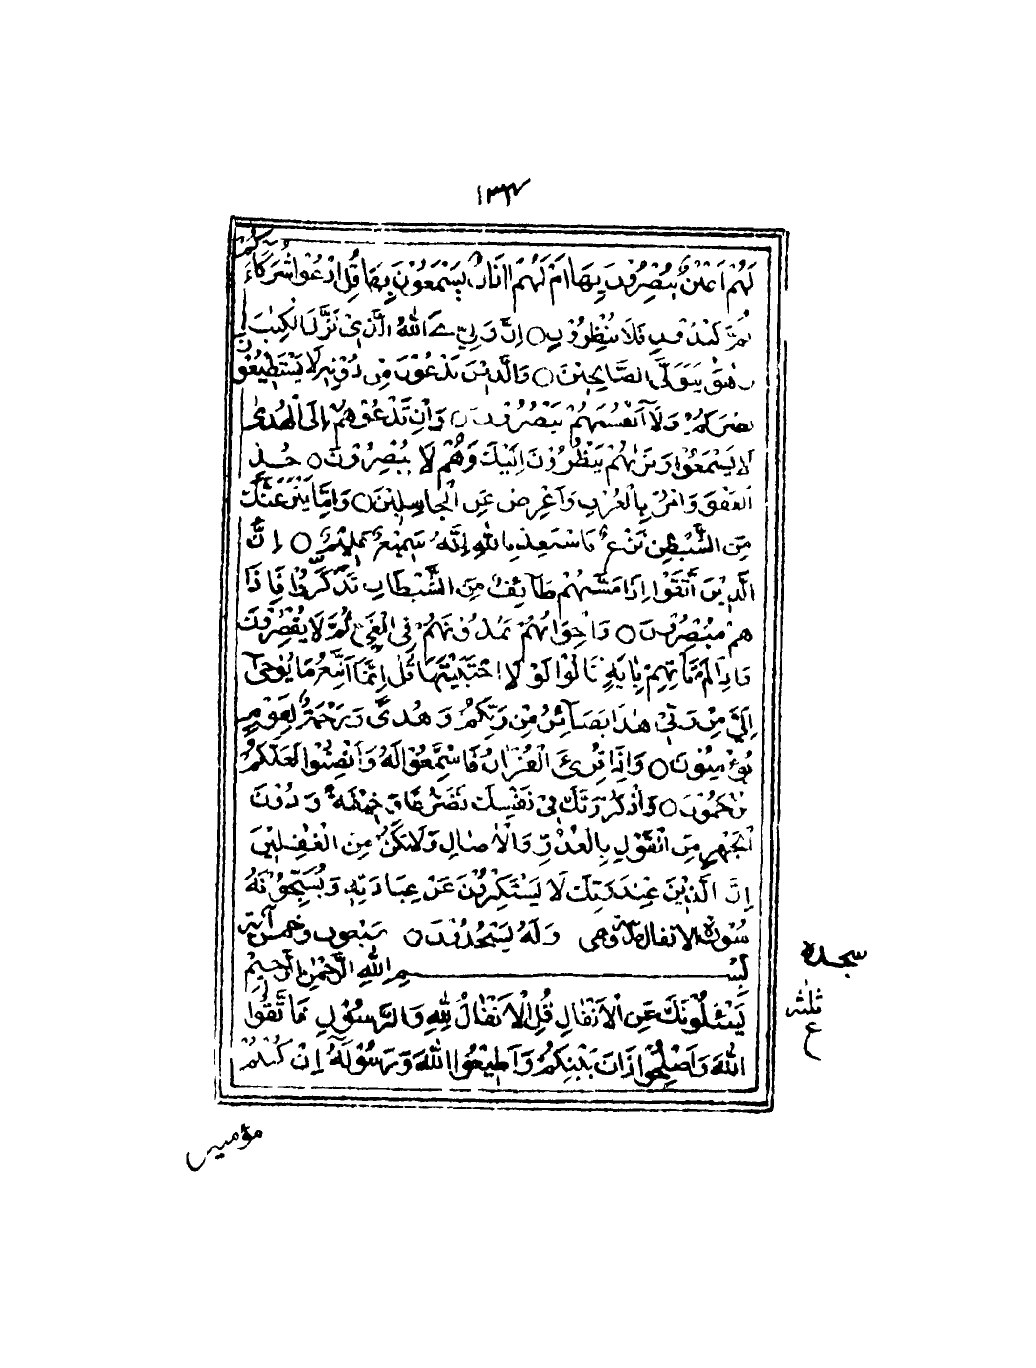 ١٣٤
لَهُمْ اَعْيُنٌ يُبْصِرُوْنَ بِهَا اَمْ لَهُمْ اٰذَانٌ يَسْمَعُوْنَ بِهَا قُلِ ادْعُوْا شُرَكَاءَكُمْ
ثُمَّ كِيْدُوْنِ فَلَا تُنْظِرُوْنِ ○ اِنَّ وَلِيِّ َ اللّٰهُ الَّذِيْ نَزَّلَ الْكِتٰبَ
وَهُوَ يَتَوَلَّى الصَّالِحِيْنَ ○ وَالَّذِيْنَ تَدْعُوْنَ مِنْ دُوْنِهٖ لَا يَسْتَطِيْعُوْنَ
نَصْرَكُمْ وَلَآ اَنْفُسَهُمْ يَنْصُرُوْنَ ○ وَاِنْ تَدْعُوْهُمْ اِلَى الْهُدٰى
لَا يَسْمَعُوْا وَتَرٰىهُمْ يَنْظُرُوْنَ اِلَيْكَ وَهُمْ لَا يُبْصِرُوْنَ ○ خُذِ
الْعَفْوَ وَاْمُرْ بِالْعُرْفِ وَاَعْرِضْ عَنِ الْجَاهِلِيْنَ ○ وَاِمَّا يَنْزَغَنَّكَ
مِنَ الشَّيْطٰنِ نَزْغٌ فَاسْتَعِذْ بِاللّٰهِ اِنَّهُ سَمِيْعٌ عَلِيْمٌ ○ اِنَّ
الَّذِيْنَ اتَّقَوْا اِذَا مَسَّهُمْ طَآئِفٌ مِنَ الشَّيْطَانِ تَذَكَّرُوْا فَاِذَا
هُمْ مُبْصِرُوْنَ ○ وَاِخْوَانُهُمْ يَمُدُّوْنَهُمْ فِي الْغَيِّ ثُمَّ لَا يُقْصِرُوْنَ
وَاِذَا لَمْ تَأْتِهِمْ بِاٰيَةٍ قَالُوْا لَوْ لَا اجْتَبَيْتَهَا قُلْ اِنَّمَا اَتَّبِعُ مَا يُوْحٰى
اِلَيَّ مِنْ رَبِّيْ هٰذَا بَصَآئِرُ مِنْ رَبِّكُمْ وَهُدًى وَرَحْمَةٌ لِقَوْمٍ
يُؤْمِنُوْنَ ○ وَاِذَا قُرِئَ الْقُرْاٰنُ فَاسْتَمِعُوْا لَهُ وَاَنْصِتُوْا لَعَلَّكُمْ
تُرْحَمُوْنَ ○ وَاذْكُرْ رَبَّكَ فِيْ نَفْسِكَ تَضَرُّعًا وَخِيْفَةً وَدُوْنَ
الْجَهْرِ مِنَ الْقَوْلِ بِالْغُدُوِّ وَالْاٰصَالِ وَلَا تَكُنْ مِنَ الْغٰفِلِيْنَ
اِنَّ الَّذِيْنَ عِنْدَ رَبِّكَ لَا يَسْتَكْبِرُوْنَ عَنْ عِبَادَتِهٖ وَيُسَبِّحُوْنَهُ
سُوْرَةُ الانفال وهى وَلَهُ يَسْجُدُوْنَ ○ سبعون وخمس آية
بِسْمِ اللّٰهِ الرَّحْمٰنِ الرَّحِيْمِ
يَسْئَلُوْنَكَ عَنِ الْاَنْفَالِ قُلِ الْاَنْفَالُ لِلّٰهِ وَالرَّسُوْلِ فَاتَّقُوا
اللّٰهَ وَاَصْلِحُوْا ذَاتَ بَيْنِكُمْ وَاَطِيْعُوا اللّٰهَ وَرَسُوْلَهُ اِنْ كُنْتُمْ
سجدة
ثلثة
ع
مؤمنين